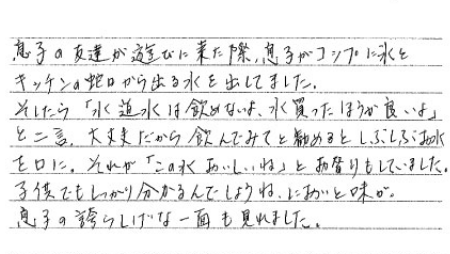 息子の友達が遊びに来た際、息子がコップに氷と
キッチンの蛇口から出る水を出してました。
そしたら「水道水は飲めないよ、水買ったほうが良いよ」
と一言。大丈夫だから飲んでみてと勧めるとしぶしぶお水
を口に。それが「この水おいしいね」とお替りもしていました。
子供でもしっかり分かるんでしょうね、においと味が。
息子の誇らしげな一面も見れました。